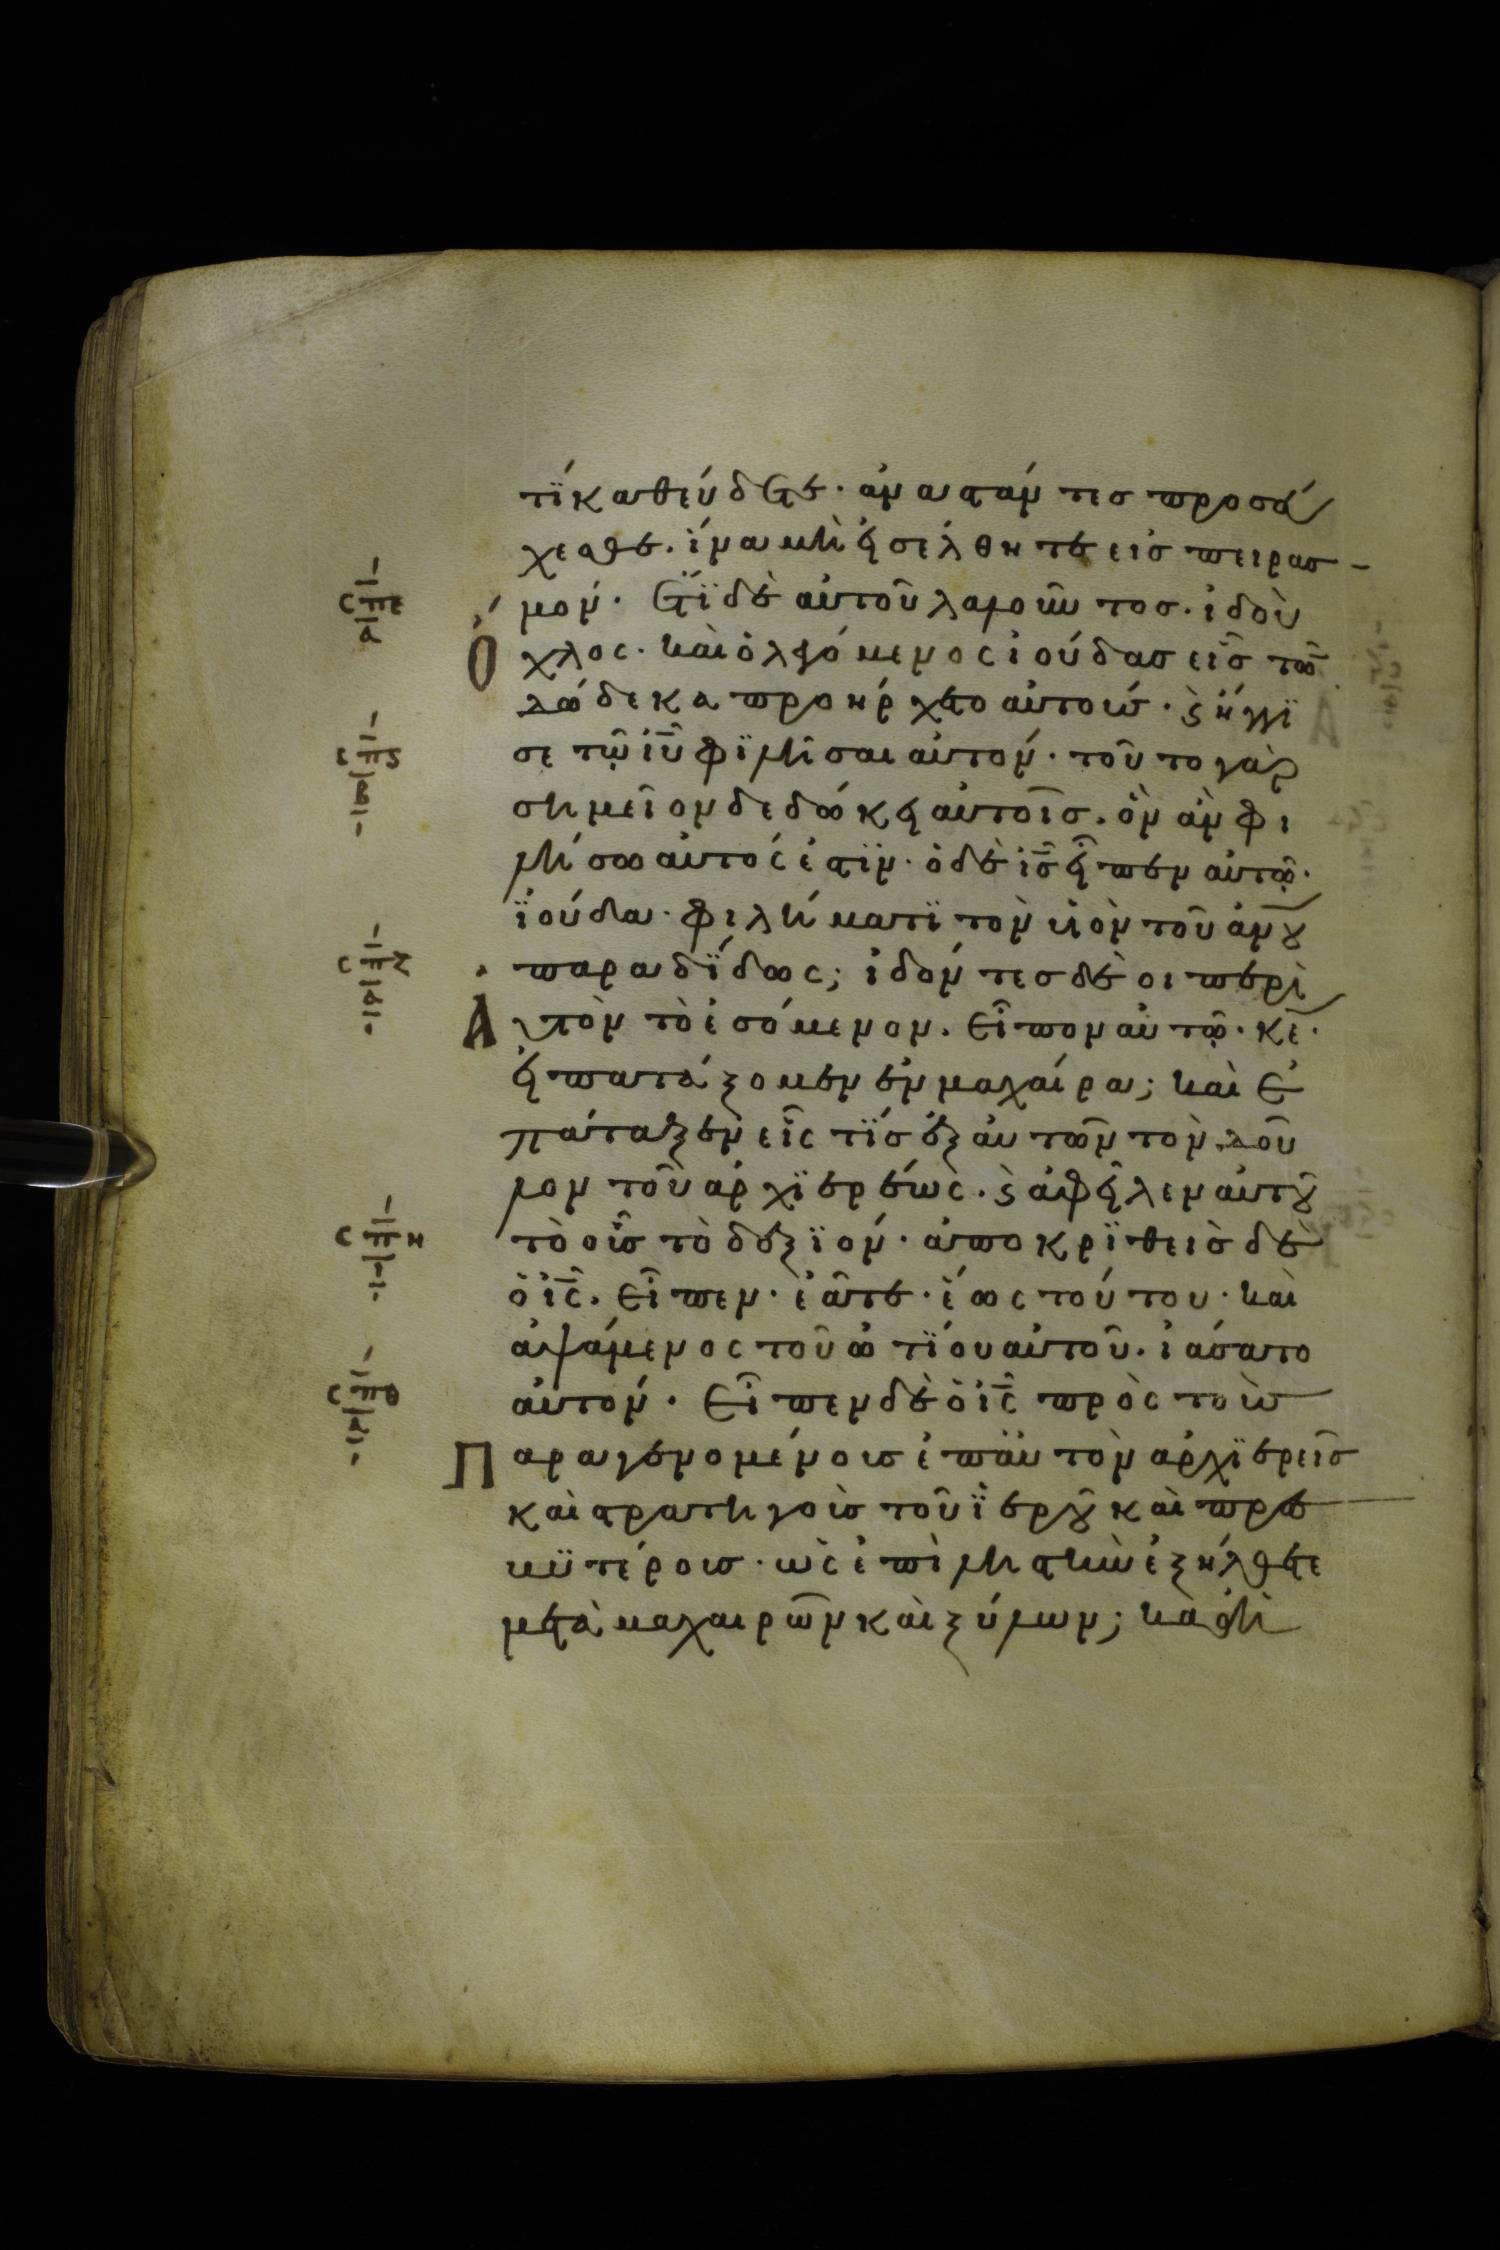 τί καθεύδετε· ἀναστάντες προσεύ
χεσθε· ἵνα μὴ εἰσέλθητε εἰς πειρασ-
μόν· Ἔτι δὲ αὐτοῦ λαλοῦντος· ἰδοὺ
σπε α
ὄχλος· καὶ ὁ λεγόμενος ἰούδας εἷς τῶν
δώδεκα προήρχετο αὐτοὺς· ϗ ἤγγϊ
σε τῷ ἰυ̅ φϊλῆσαι αὐτόν· τοῦτο γὰρ
σπϛ β
σημεῖον δεδώκει αὐτοῖς· ὃν ἂν φι
λήσω αὐτός ἐστϊν· ὁ δὲ ις̅ εἶπεν αὐτῷ·
ἰούδα· φιλήματϊ τὸν υἱὸν τοῦ ἀνου̅
παραδίδως; ἰδόντες δὲ οι περὶ
σπζ α
Αὐτὸν τὸ ἐσόμενον· εἶπον αὐτῷ· κε̅·
εἰ πατάξομεν ἐν μαχαίρα; καὶ ἐ
πάταξεν εἷς τίς ἐξ αὐτῶν τὸν δοῦ
λον τοῦ ἀρχϊερέως· ϗ ἀφεῖλεν αὐτοῦ
τὸ οὖς τὸ δεξϊόν· ἀποκρϊθεὶς δὲ
σπη ι
ὁ ις̅· εἶπεν· ἐᾶτε· ἕως τούτου· καὶ
ἁψάμενος τοῦ ὠτίου αὐτοῦ· ἰάσατο
αὐτόν· Εἶπεν δὲ ὁ ις̅ πρὸς τοὺς
σπθ α
Παραγενομένους ἐπ αὐτὸν ἀρχϊερεῖς
καὶ στρατηγοὺς τοῦ ϊεροῦ καὶ πρεσ
βϋτέρους· ὡς ἐπὶ ληστὴν ἐξήλθετε
μετὰ μαχαιρῶν καὶ ξύλων; καθ ἡ